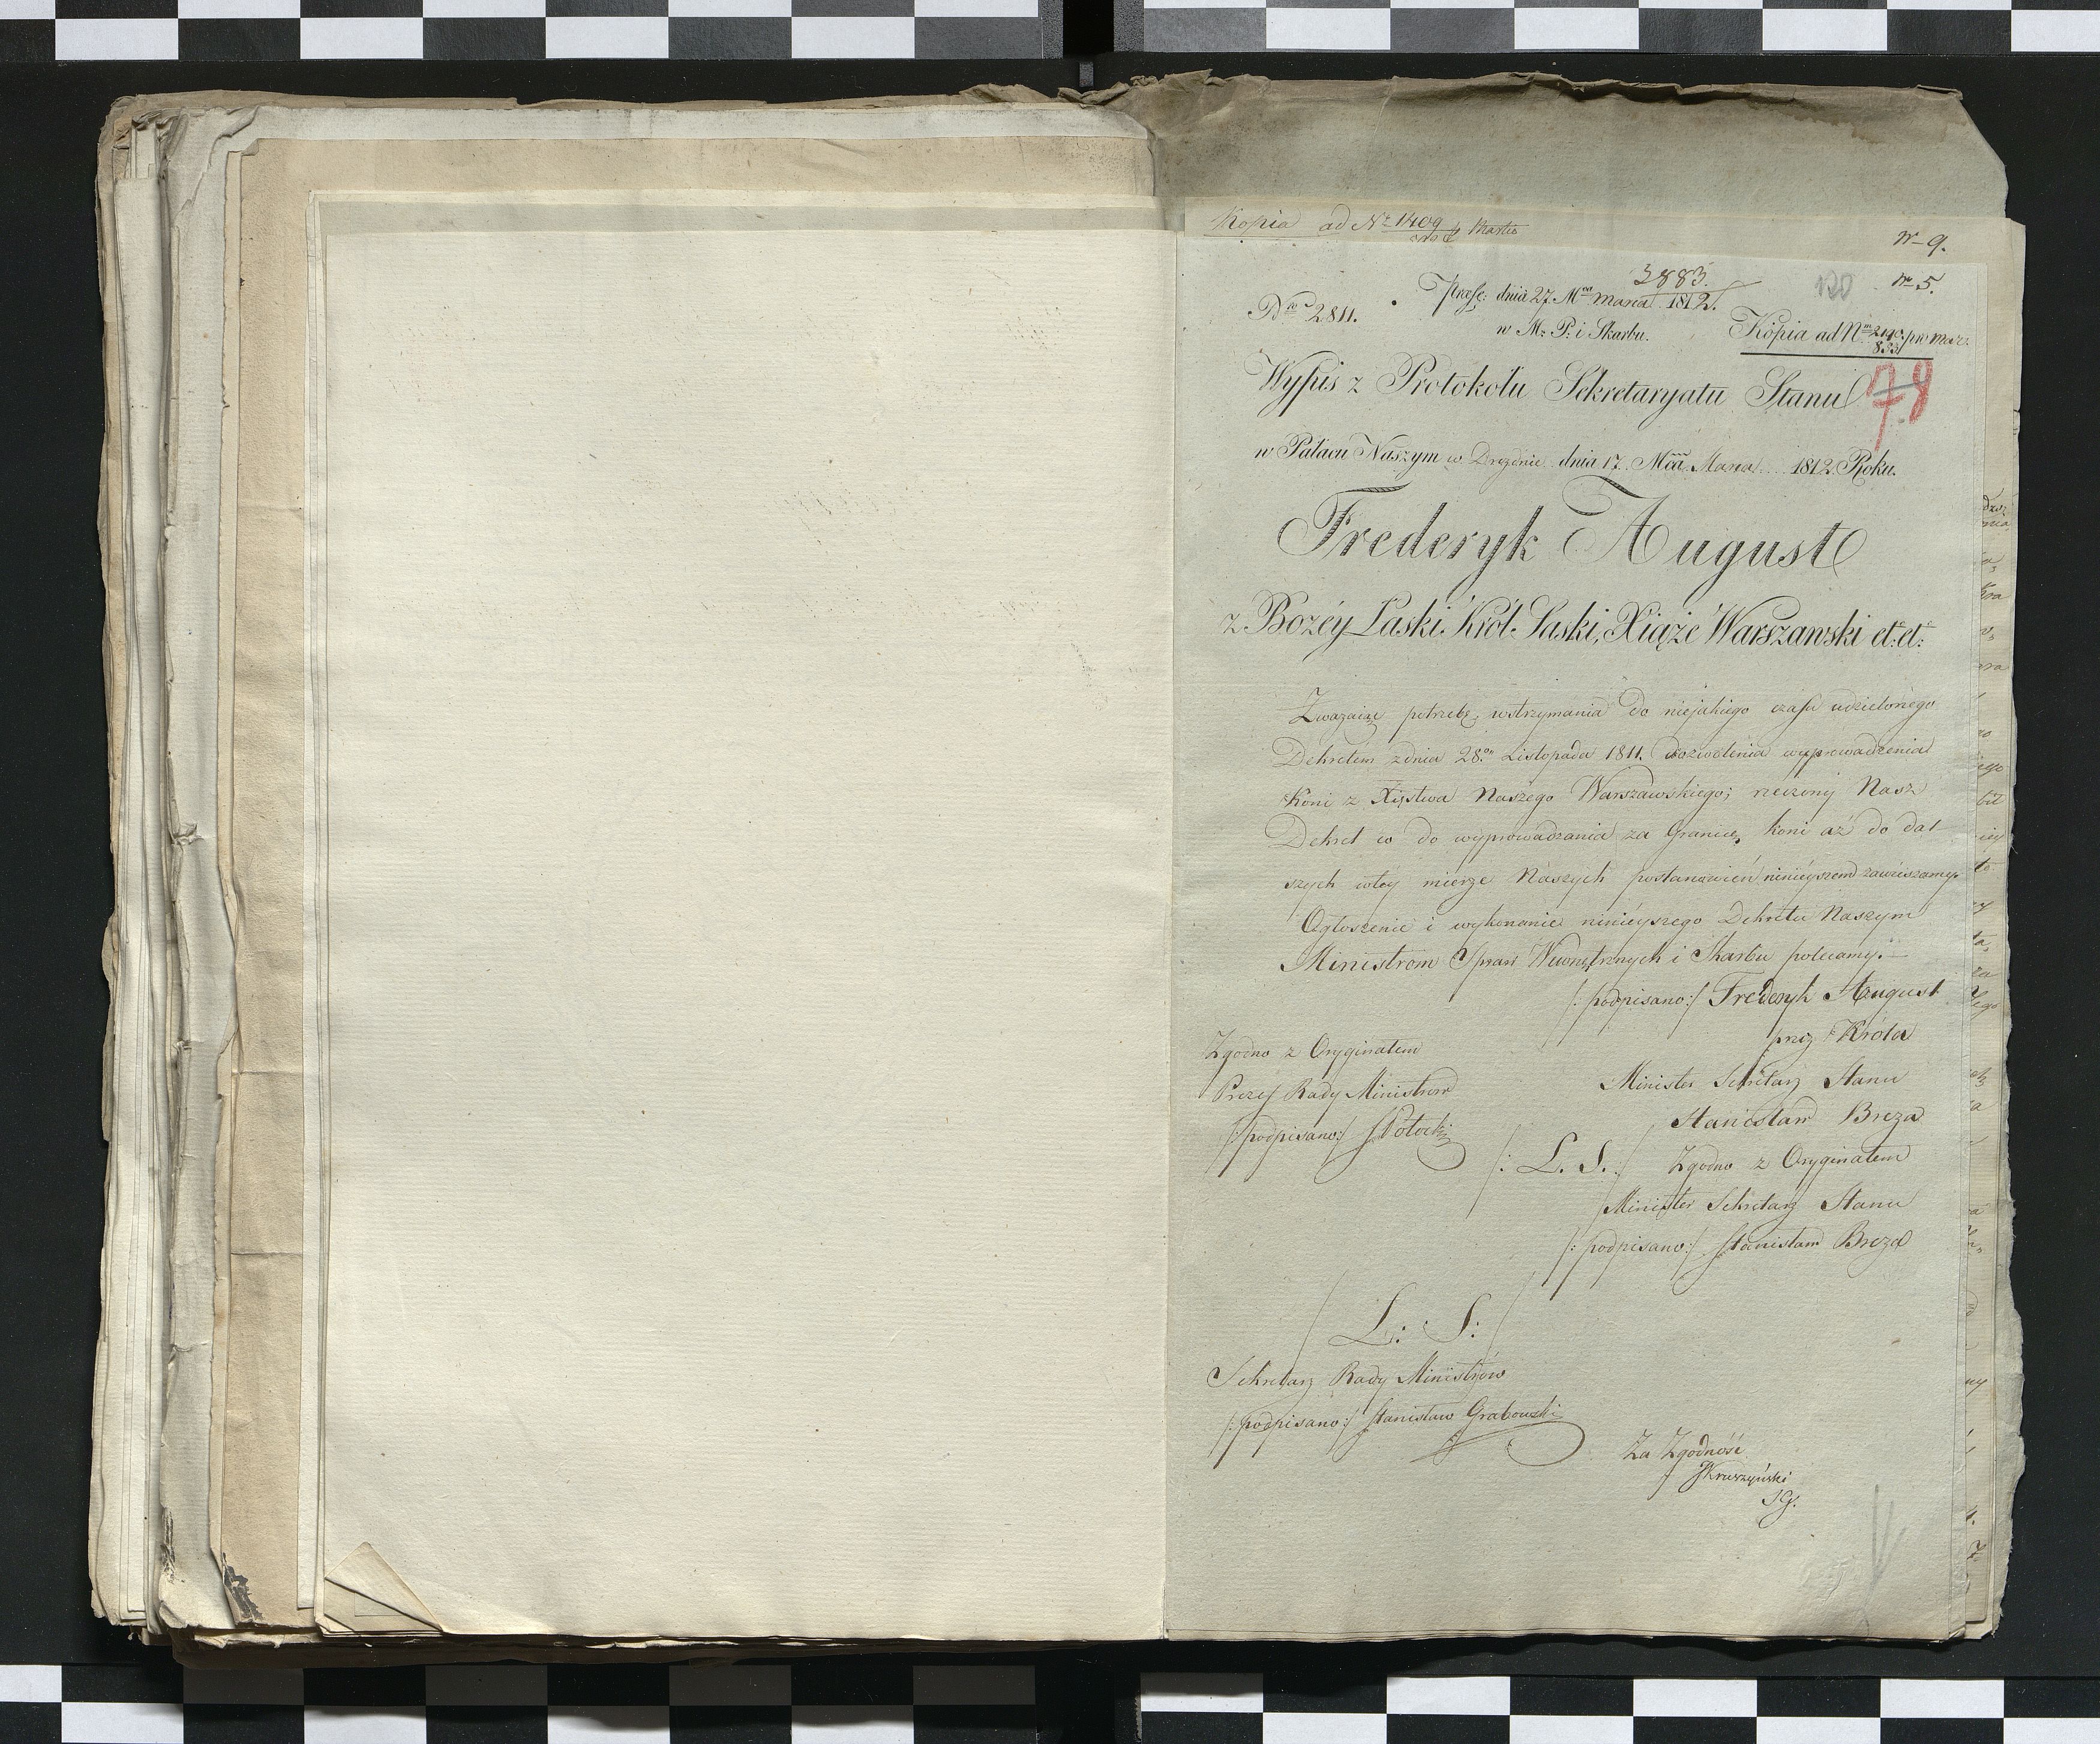 Kopia ad Nr 1409 Martio
Nr 9.
3883.
120
Nr 5.
Dnr 2811.
Præs: dnia 27. Mca Marca 1812.
w M. P. i Skarbu.
Kopia ad Nm 240 pro Marz
833
78
Wypis z Protokołu Sekretaryatu Stanu
w Pałacu Naszym w Dreznie dnia 17. Mca Marca 1812 Roku.
Frederyk August
z Bożéy Łaski Król Saski, Xiąże Warszawski et: et:
Zważaiąc potrzebę wstrzymania do niejakiego czasu udzielonego
Dekretem z dnia 28.go Listopada 1811. dozwolenia wyprowadzenia
Koni z Xięstwa Naszego Warszawskiego; rzeczony Nasz
Dekret co do wyprowadzania za Granicę koni aż do dal
szych w tey mierze Naszych postanowień ninieyszem zawieszamy.
Ogłoszenie i wykonanie ninieyszego Dekretu Naszym
Ministrom Spraw Wewnętrznych i Skarbu polecamy.
/: podpisano :/ Frederyk August
przez Króla
Zgodno z Oryginałem
Minister Sekretarz Stanu
Prezes Rady Ministrow
Stanisław Breza
/: podpisano :/ Potocki
/: L. S. :/ Zgodno z Oryginałem
Minister Sekretarz Stanu
/: podpisano :/ Stanisław Breza
/ L: S: /
Sekretarz Rady Ministrów
/: podpisano :/ Stanisław Grabowski
Za Zgodność
Kruszyński
SG.